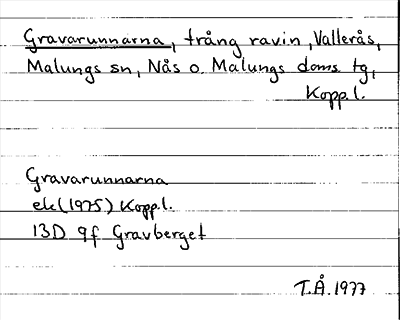 Gravarunnarna, trång ravin, Vallerås,
Malungs sn, Nås o. Malungs doms. tg,
Kopp.l.
Gravarunnarna
ek (1975) Kopp.l.
13D 9f Gravberget
T.Å. 1977